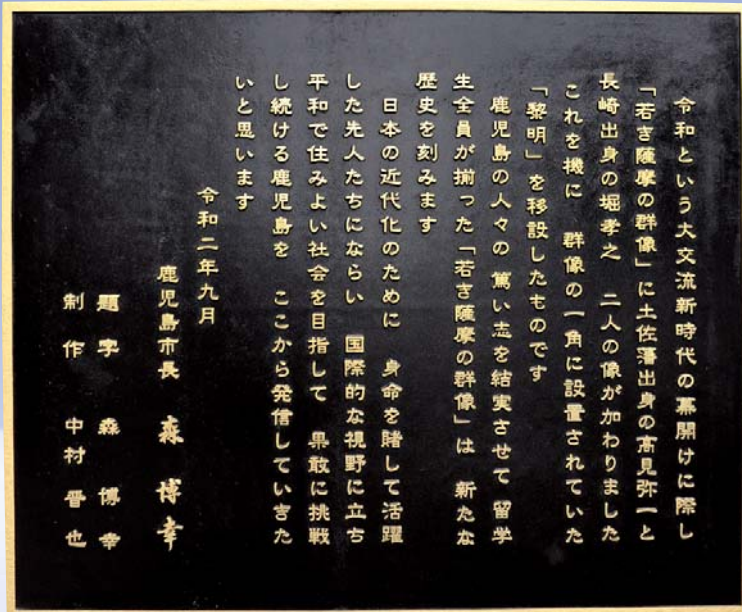 令和という大交流新時代の幕開けに際し
「若き薩摩の群像」に土佐藩出身の高見弥一と
長崎出身の堀孝之　二人の像が加わりました
これを機に　群像の一角に設置されていた
「黎明」を移設したものです
鹿児島の人々の　篤い志を結実させて　留学
生全員が揃った「若き薩摩の群像」は　新たな
歴史を刻みます
日本の近代化のために　身命を賭して活躍
した先人たちにならい　国際的な視野に立ち
平和で住みよい社会を目指して　果敢に挑戦
し続ける鹿児島を　ここから発信していきた
いと思います
令和二年九月
鹿児島市長　森　博幸
題字　森　博幸
制作　中村晋也